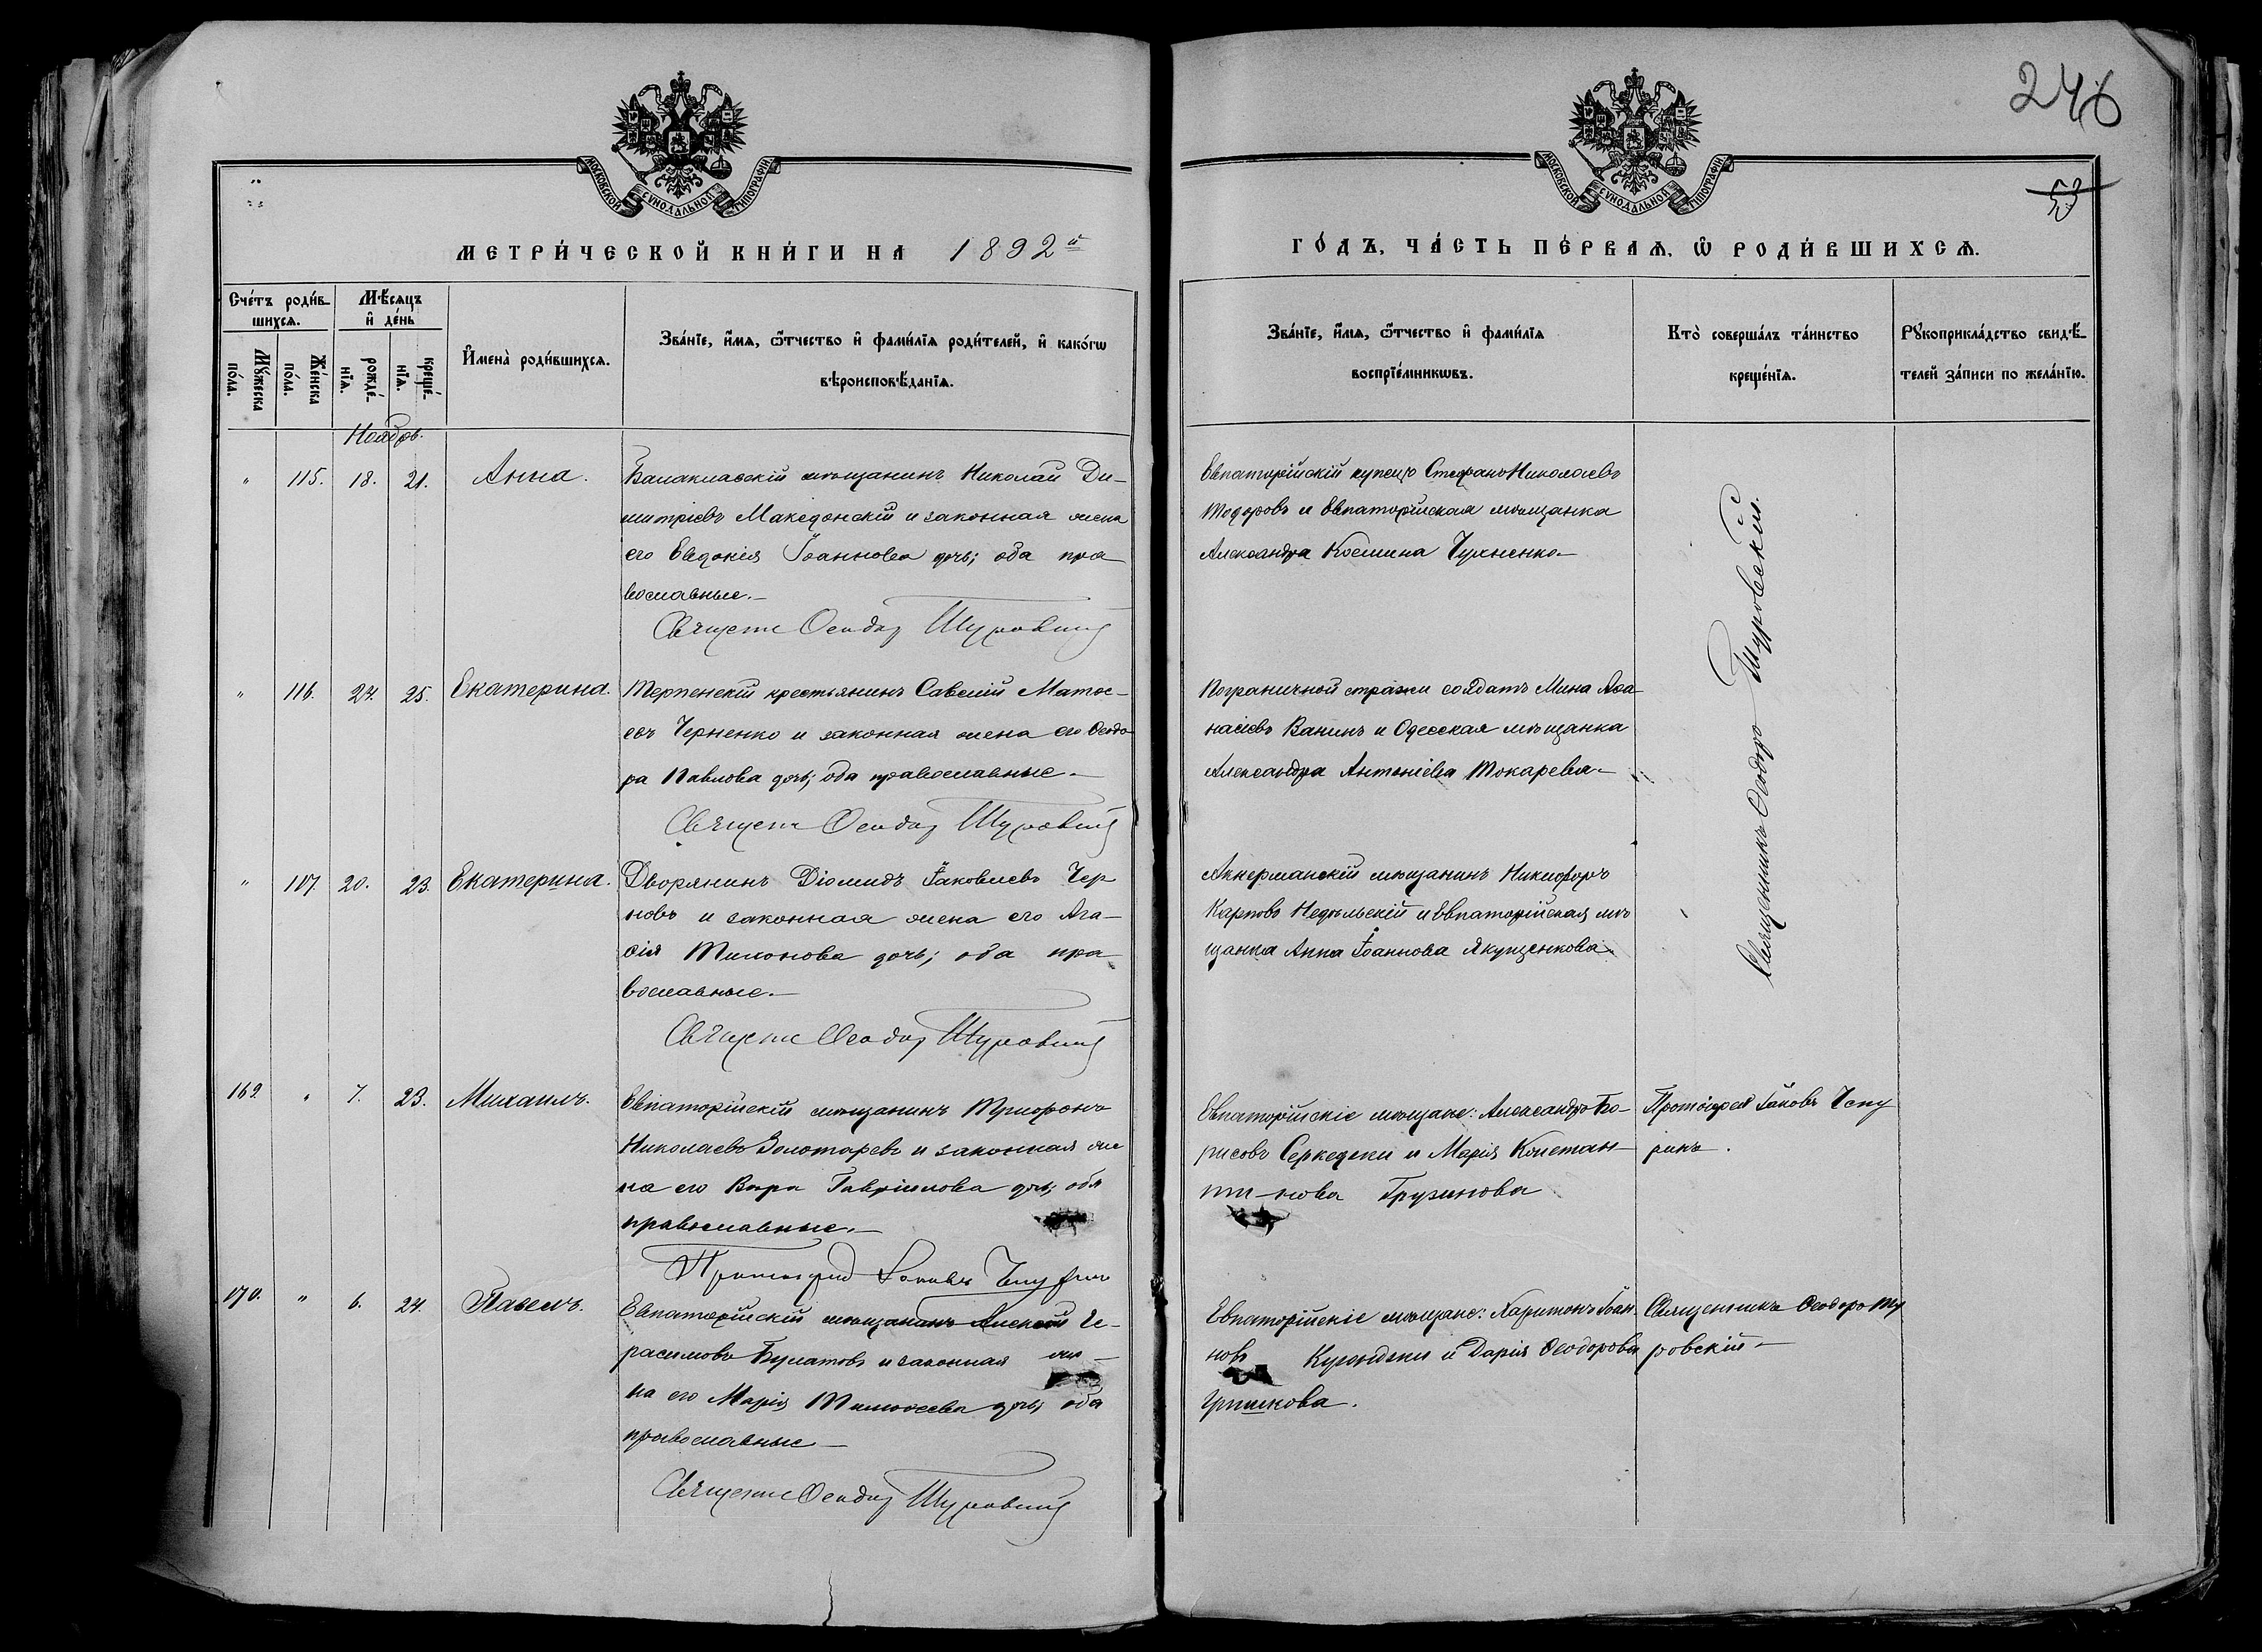 246
53
МОСКОВСКОЙ СѴНОДАЛЬНОЙ ТИПОГРАФІИ
МОСКОВСКОЙ СѴНОДАЛЬНОЙ ТИПОГРАФІИ
МЕТРИ́ЧЕСКОЙ КНИ́ГИ НА 1892й
ГО́ДЪ, ЧА́СТЬ ПЕ́РВАЯ, Ѡ РОДИ́ВШИХСЯ.
Сче́тъ роди́в-
шихся.
Мꙋжеска по́ла.
Же́нска по́ла.
Мѣ́сяцъ
и҆ де́нь
рожде́-
нїя.
креще́-
нїя.
И҆мена̀ роди́вшихся.
Зва́нїе, и҆́мя, ѻ҆́тчество и҆ фами́лїя роди́телей, и҆ како́гѡ
вѣроисповѣ́данїя.
Зва́нїе, и҆́мя, ѻ҆́тчество и҆ фами́лїя
воспрїе́мникѡвъ.
Кто̀ соверша́лъ та́инство
креще́нїя.
Рꙋкоприкла́дство свидѣ́-
телей за́писи по жела́нїю.
Ноябрь.
" 115. 18. 21. Анна.
Балаклавскій мѣщанинъ Николай Ди-
митріевъ Македонскій и законная жена
его Евдокія Іоаннова дочь; оба пра
вославные.—
Священ Ѳеодор Шуровскій
Евпаторійскій купецъ Стефанъ Николаевъ
Тодоровъ и Евпаторійская мѣщанка
Александра Космина Чухненко—
Священникъ Ѳеодоръ Шуровскій.
" 116. 24. 25. Екатерина.
Терпенскій крестьянинъ Савелій Матѳе-
евъ Черненко и законная жена его Ѳеодо-
ра Павлова дочь; оба православные.—
Священ Ѳеодор Шуровскій
Пограничной стражи солдатъ Мина Аѳа-
насіевъ Ванинъ и Одесская мѣщанка
Александра Антоніева Токарева—
" 117. 20. 23. Екатерина.
Дворянинъ Діомидъ Іаковлевъ Чер
новъ и законная жена его Ага-
ѳія Тихонова дочь; оба пра
вославные.—
Священ Ѳеодор Шуровскій
Аккерманскій мѣщанинъ Никифоръ
Карповъ Недѣльскій и Евпаторійская мѣ
щанка Анна Іоаннова Якущенкова
169 " 7. 23. Михаилъ.
Евпаторійскій мѣщанинъ Трифонъ
Николаевъ Золотаревъ и законная же
на его Вѣра Гавріилова дочь; оба
православные.—
Протоіерей Іаковъ Чепуринъ
Евпаторійскіе мѣщане: Александръ Бо-
рисовъ Серкеджи и Марія Констан-
ти-нова Грузинова
Протоіерей Іаковъ Чепу
ринъ.
170. " 6. 24. Павелъ.
Евпаторійскій мѣщанинъ Алексѣй Ге-
расимовъ Булатовъ и законная же-
на его Марія Тимоѳеева дочь; оба
православные—
Священ Ѳеодор Шуровскій
Евпаторійскіе мѣщане: Харитонъ Іоан-
новъ и Дарія Ѳеодорова
Гришкова.
Священникъ Ѳеодоръ Шу
ровскій—